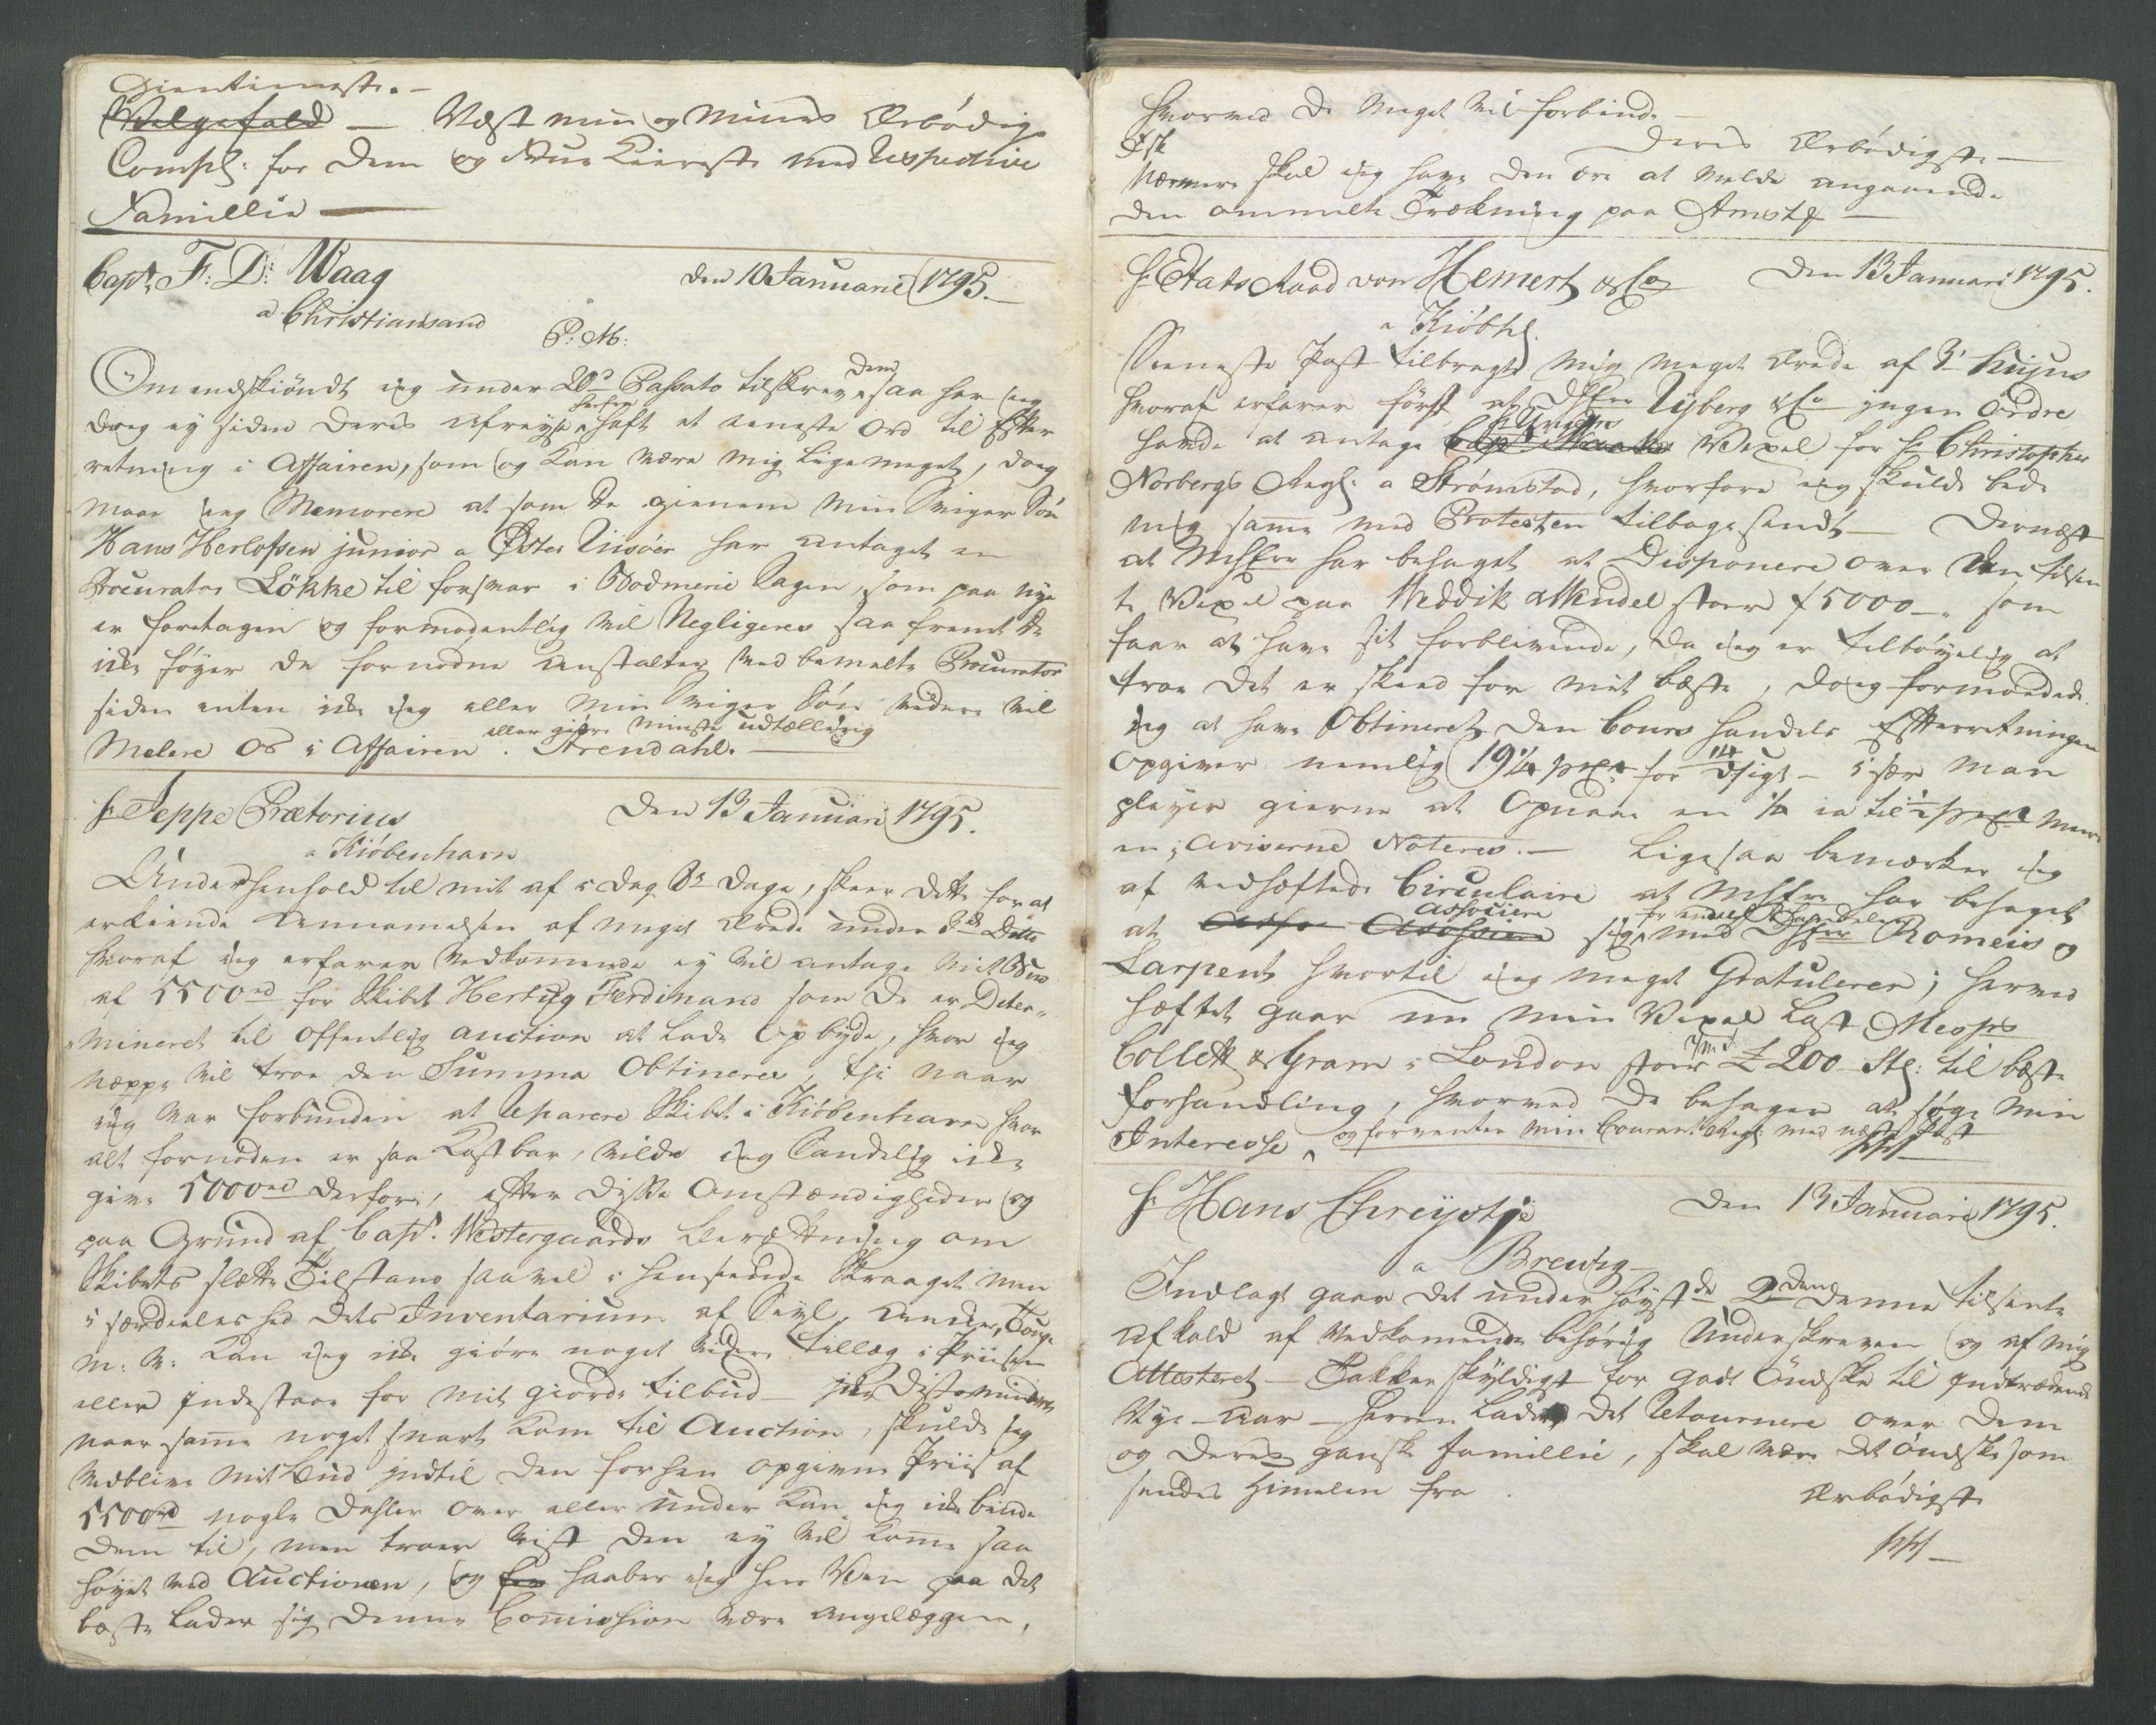 Gientieneste. —
Velgefald — Næst min og Mines Ærbødige
Compl: for Dem og Frue Kiereste med Respective
Famillie —
Capt. F: D: Waag den 10 Januarii 1795. —
a Christiansand
P: M:
Omendskiøndt jeg under 20de Passato tilskrev Dem saa har jeg
dog ey siden Deres afreyse haft et eeneste Ord til Efter
retning i Affairen, som og kan være mig lige meget, dog
maae jeg Memorere at som De gienem min Sviger Søn
Hans Herlofsen junior a Øster Riisøer har antaget en
Procurator Løkke til forsvar i Bodmerie Sagen, som paa nye
er foretagen og formodentlig vil Negligeres saa fremt De
ikke føyer de fornødne anstalter ved bemelte Procurator
siden enten ikke jeg eller Min Sviger Søn videre vil
eller giøre mindste udtælling
Melere os i Affairen. Arendahl. —
Hr Jeppe Prætorius Den 13 Januari 1795.
a Kiøbenhavn
Under henhold til mit af i dag 8te Dage, skeer dette for at
erkiende Annammelsen af meget Ærede under 3de Dito
hvoraf jeg erfarer Vedkomende ey vil antage mit Bud
af 5500rd for Skibet Hertug Ferdinand som De er Deter-
mineret til offentlig auction at lade opbyde, hvor jeg
næppe vil troe den Summa Obtineres, thi naar
jeg var forbunden at Reparere Skibet i Kiøbenhavn hvor
alt fornøden er saa Kostbar, vilde jeg Sandelig ikke
give 5000rd derfor, efter disse Omstændigheder og
paa Grund af Capt. Westergaards Berættning om
Skibets slette Tilstand saavel i henseende Skraaget men
i særdeeleshed dets Inventarium af Seyl, Anker, Touge
M: V: kan jeg ikke giøre noget videre Tillæg i Priisen
eller indestaae for mit giorde tilbud — desto mindre
naar samme noget snart kom til Auction, skulde jeg
vedblive mit bud indtil den forhen opgivne Priis af
5500rd nogle Dahler over eller under kan jeg ikke binde
dem til, men troer vist den ey vil komme saa
høyet ved Auctionen, og haaber jeg Herr Ven paa det
beste lader sig denne Commission være angelæggen,
hvorved De meget vil forbinde —
Deres Ærbødigste —
Nærmere skal jeg have den ære at melde angaaende
den ommelte Trækning paa Amstd —
Hr Etats Raad von Hemert & Co Den 13 Januari 1795.
a Kiøbh.
Seeneste Post tilbragte mig meget Ærede af 3' huius
hvoraf erfarer først at Dhrr Ryberg & Co ingen Ordre
havde at antage Vexel for Hr Christopher
Norbergs Regl: a Strømstad, hvorfore jeg skulde bede
mig samme med Protesten tilbage sendt — Dernæst
at Mhrr har behaget at Disponere over den tilsen
te Vexel paa Weddik & Wendel stoer ƒ 5000 — som
faar at have sit forblivende, da jeg er tilbøyelig at
troe det er skeed for mit bæste, dog formodede
jeg at have Obtineret den Cours handels Efterretningen
opgiver nemlig 19¼ pCt for 14 Dsigt — især man
pleyer gierne at opnaae en ¼ ja til ½ pCt meer
en i Aviserne Noteres. — Ligesaa bemærker jeg
af vedhæftede Circulaire at Mhrr har behaget
at associere sig med Dhrr Romeis og
Larpent hvortil jeg meget Gratulerer; herved
hæftet gaar nu min Vexel last Messrs
Collett & Gram i London stoer £ 200 Stl: til bæste
forhandling, hvorved De behager at søge min
Interesse og forventer min Courant Regl: med næste Post
Hr Hans Chrystje Den 13 Januari 1795.
a Brewig
Indlagt gaar det under høystde 2den Denne tilsente
afkald af Vedkomende behørig Underskreven og af mig
Attesteret — Takker skyldigst for godt Øndske til indtrædende
Nye-Aar — Herren lade det Retournere over Dem
og Deres gandske Famillie, skal være det øndske som
sendes Himelen fra. Ærbødigst